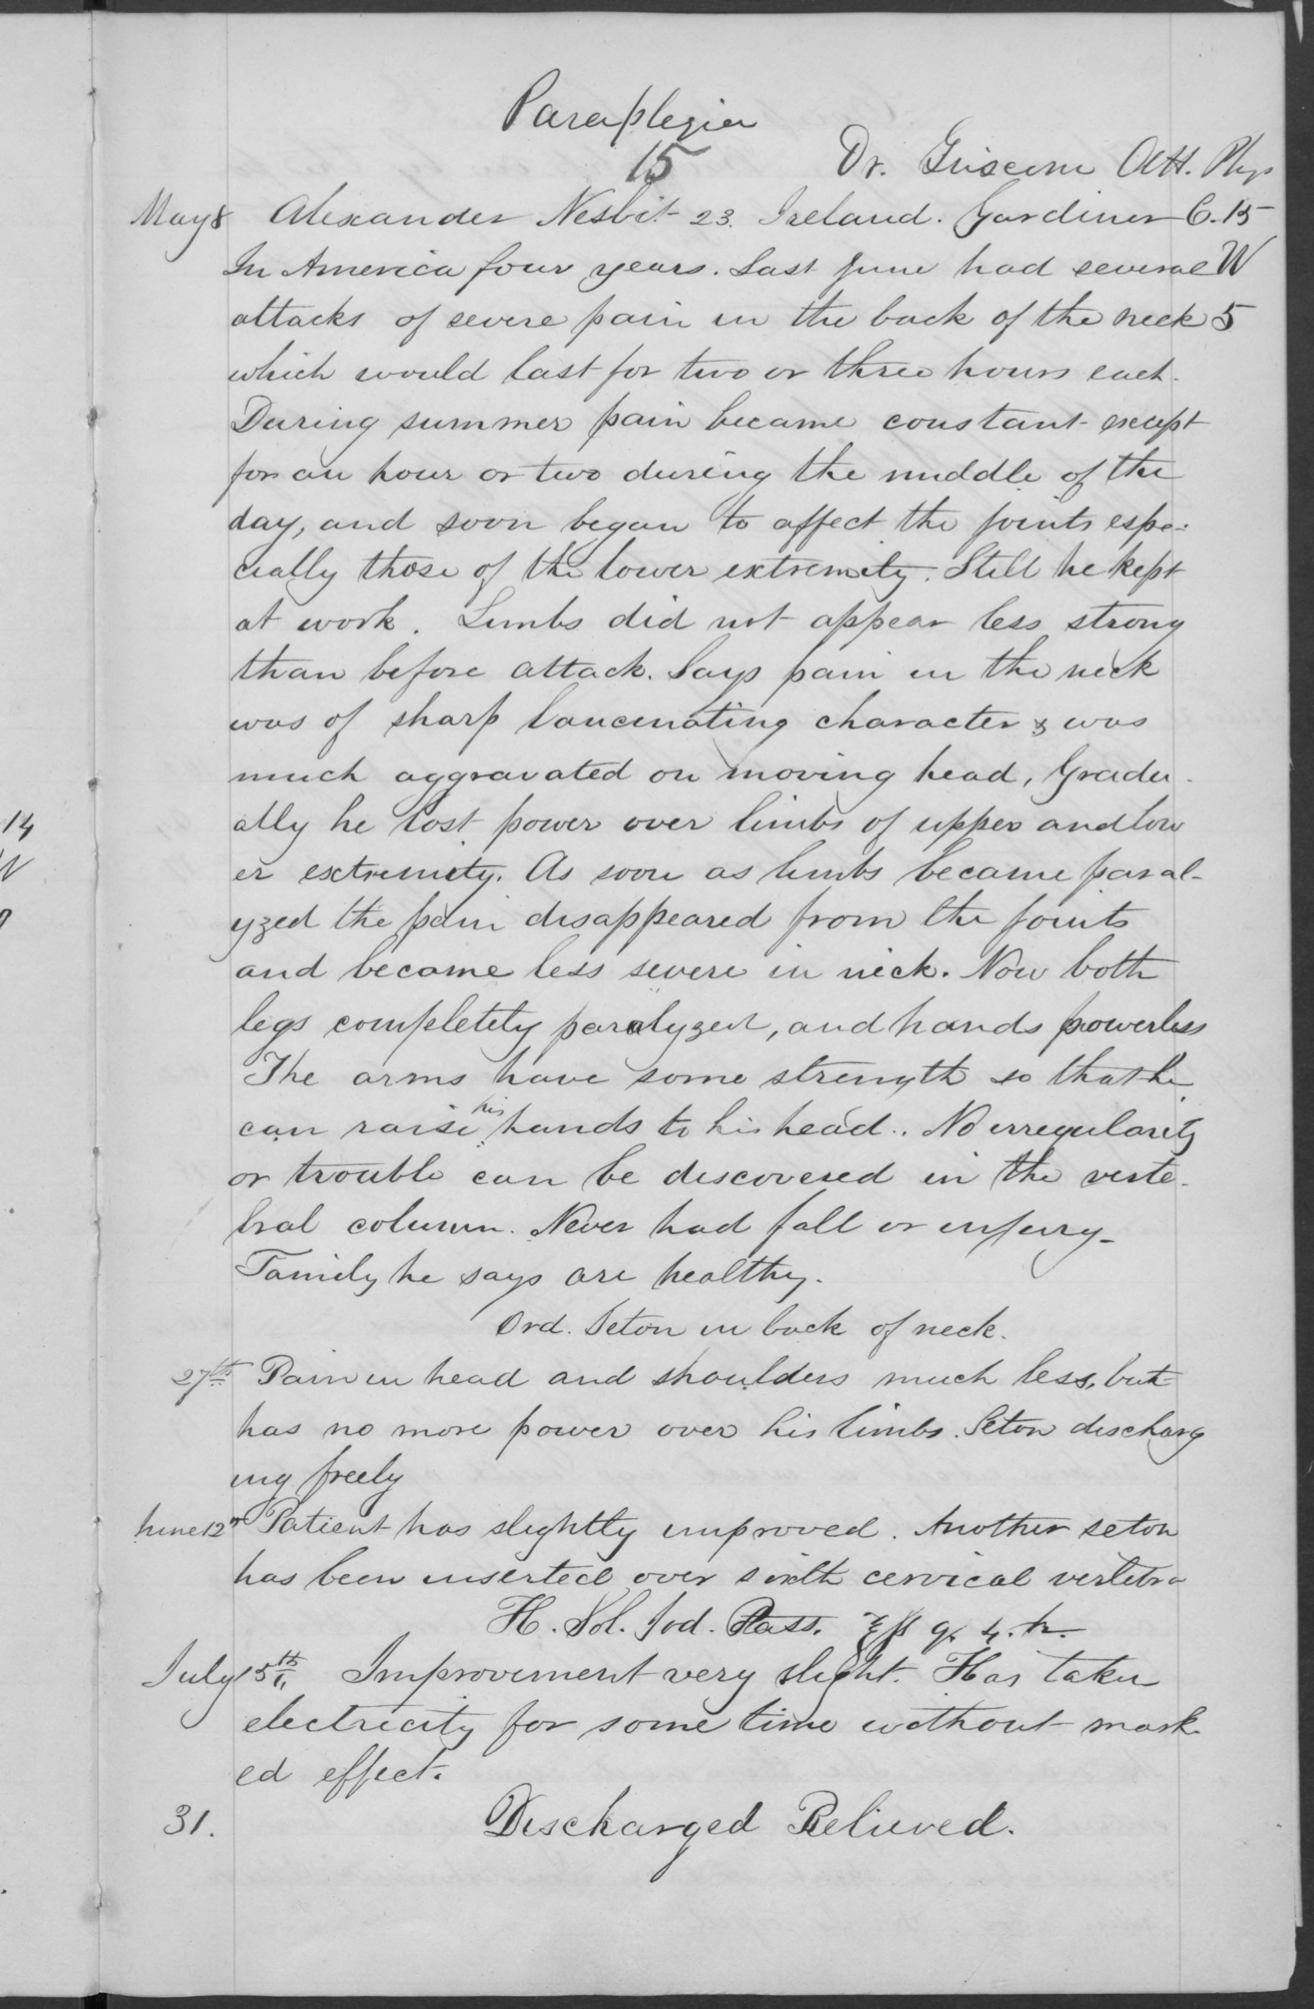 Paraplegia
15
Dr. Griscom Att. Phys
May 8 Alexander Nesbit 23. Ireland. Gardiner C. 15
In America four years. Last June had several W
attacks of severe pain in the back of the neck 5
which would last for two or three hours each.
During summer pain became constant except
for an hour or two during the middle of the
day, and soon began to affect the joints espe-
cially those of the lower extremity. Still he kept
at work. Limbs did not appear less strong
than before attack. Says pain in the neck
was of sharp lancinating character & was
much aggravated on moving head, Gradu-
ally he lost power over limbs of upper and low
er extremity. As soon as limbs became paral-
yzed the pain disappeared from the joints
and became less severe in neck. Now both
legs completely paralyzed, and hands powerless
The arms have some strength so that he
can raise his hands to his head. No irregularity
or trouble can be discovered in the verte-
bral column. Never had fall or injury-
Family he says are healthy.
Ord. Seton in back of neck.
27th Pain in head and shoulders much less, but
has no more power over his limbs. Seton discharg
ing freely
June 12 Patient has slightly improved. Another seton
has been inserted over sixth cervical vertebra
H. Sol. Iod. Potass. ℥ß q. 4. h.
July 5th Improvement very slight. Has taken
electricity for some time without mark
ed effect.
31. Discharged Relieved.
14